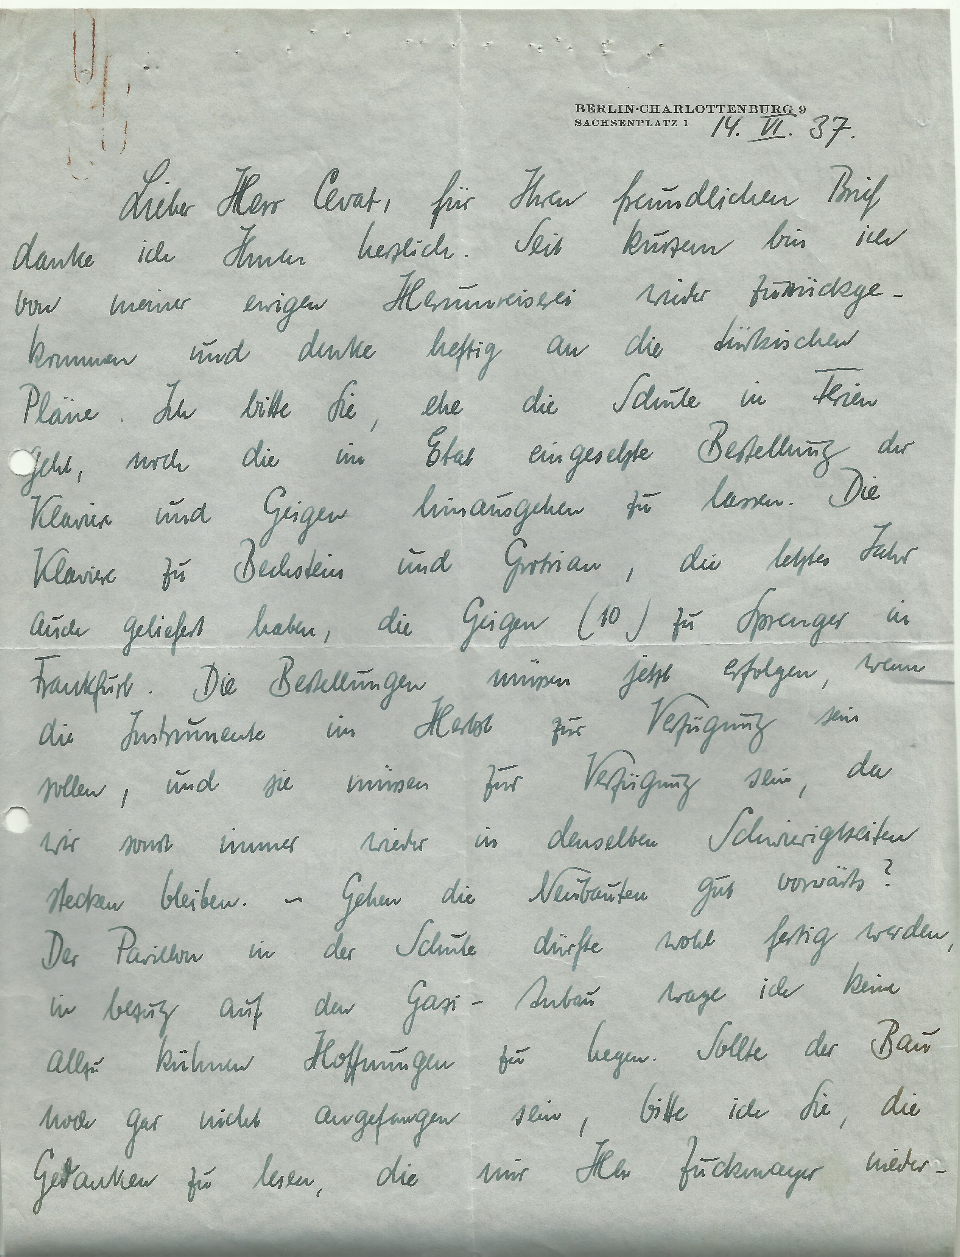 BERLIN-CHARLOTTENBURG 9
SACHSENPLATZ 1
14. VI. 37.
Lieber Herr Cevat, für Ihren freundlichen Brief
danke ich Ihnen herzlich. Seit kurzem bin ich
von meiner ewigen Herumreiserei wieder zurückge-
kommen und denke heftig an die türkischen
Pläne. Ich bitte Sie, ehe die Schule in Ferien
geht, noch die im Etat eingesetzte Bestellung der
Klaviere und Geigen hinausgehen zu lassen. Die
Klaviere zu Bechstein und Grotrian, die letztes Jahr
auch geliefert haben, die Geigen (10) zu Sprenger in
Frankfurt. Die Bestellungen müssen jetzt erfolgen, wenn
die Instrumente im Herbst zur Verfügung sein
sollen, und sie müssen zur Verfügung sein, da
wir sonst immer wieder in denselben Schwierigkeiten
stecken bleiben. – Gehen die Neubauten gut vorwärts?
Der Pavillon in der Schule dürfte wohl fertig werden,
in bezug auf den Gasi-Anbau wage ich keine
allzu kühnen Hoffnungen zu hegen. Sollte der Bau
noch gar nicht angefangen sein, bitte ich Sie, die
Gedanken zu lesen, die mir Herr Zuckmayer nieder-